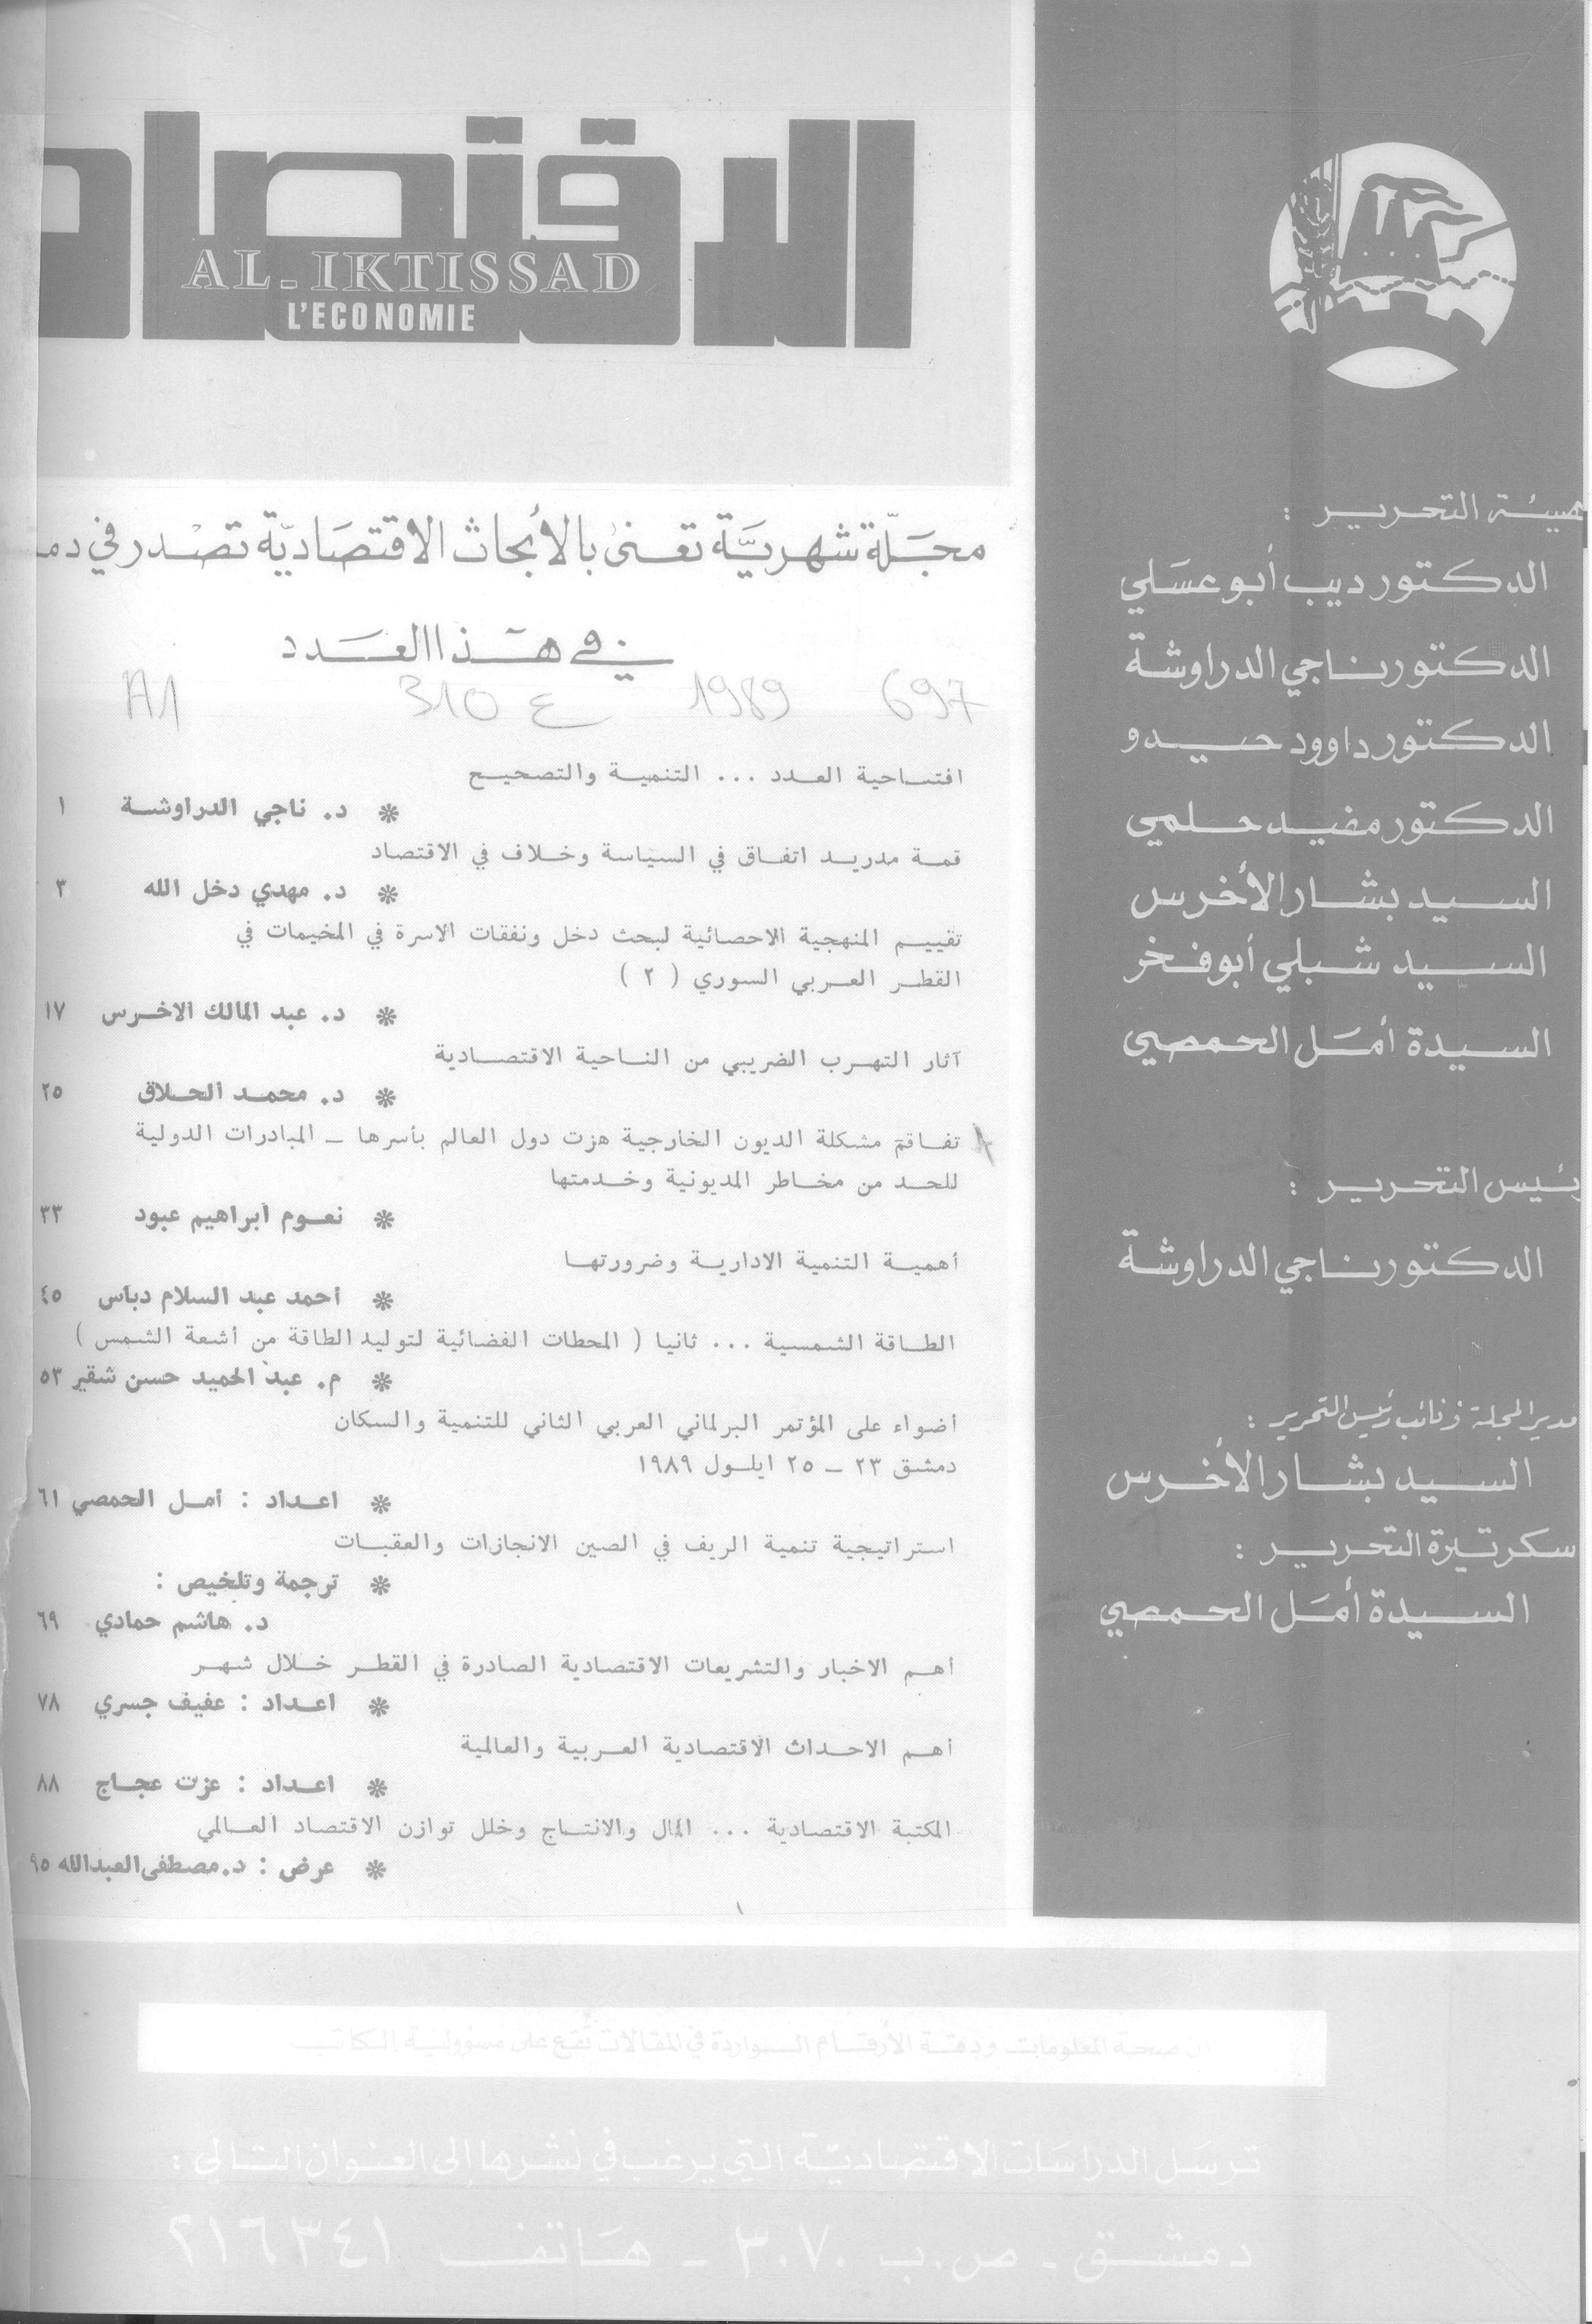 الاقتصاد
AL-IKTISSAD
L'ECONOMIE
مجلّة شهريّة تعنى بالأبحاث الاقتصاديّة تصدر في دمـ
في هذا العدد
697 1989 ع 310 A1
افتتاحية العدد ... التنمية والتصحيح
* د. ناجي الدراوشة ١
قمة مدريد اتفاق في السياسة وخلاف في الاقتصاد
* د. مهدي دخل الله ٣
تقييم المنهجية الاحصائية لبحث دخل ونفقات الاسرة في المخيمات في
القطر العربي السوري ( ٢ )
* د. عبد المالك الاخرس ١٧
آثار التهرب الضريبي من الناحية الاقتصادية
* د. محمد الحلاق ٢٥
تفاقم مشكلة الديون الخارجية هزت دول العالم بأسرها ــ المبادرات الدولية
للحد من مخاطر المديونية وخدمتها
* نعوم ابراهيم عبود ٣٣
أهمية التنمية الادارية وضرورتها
* أحمد عبد السلام دباس ٤٥
الطاقة الشمسية ... ثانيا ( المحطات الفضائية لتوليد الطاقة من أشعة الشمس )
* م. عبد الحميد حسن شقير ٥٣
أضواء على المؤتمر البرلماني العربي الثاني للتنمية والسكان
دمشق ٢٣ ــ ٢٥ ايلول ١٩٨٩
* اعداد : أمل الحمصي ٦١
استراتيجية تنمية الريف في الصين الانجازات والعقبات
* ترجمة وتلخيص :
د. هاشم حمادي ٦٩
أهم الاخبار والتشريعات الاقتصادية الصادرة في القطر خلال شهر
* اعداد : عفيف جسري ٧٨
أهم الاحداث الاقتصادية العربية والعالمية
* اعداد : عزت عجاج ٨٨
المكتبة الاقتصادية ... المال والانتاج وخلل توازن الاقتصاد العالمي
* عرض : د. مصطفى العبدالله ٩٥
هيئة التحرير :
الدكتور ديب أبو عسلي
الدكتور ناجي الدراوشة
الدكتور داوود حيدو
الدكتور مفيد حلمي
السيد بشار الأخرس
السيد شبلي أبو فخر
السيدة أمل الحمصي
رئيس التحرير :
الدكتور ناجي الدراوشة
مدير المجلة ونائب رئيس التحرير :
السيد بشار الأخرس
سكرتيرة التحرير :
السيدة أمل الحمصي
صحة المعلومات ودقة الأرقام الواردة في المقالات تقع على مسؤولية الكاتب
ترسل الدراسات الاقتصاديّة التي يرغب في نشرها إلى العنوان التالي :
دمشق ـ ص.ب ٣٠٧٠ ـ هاتف ٢١٦٣٤١